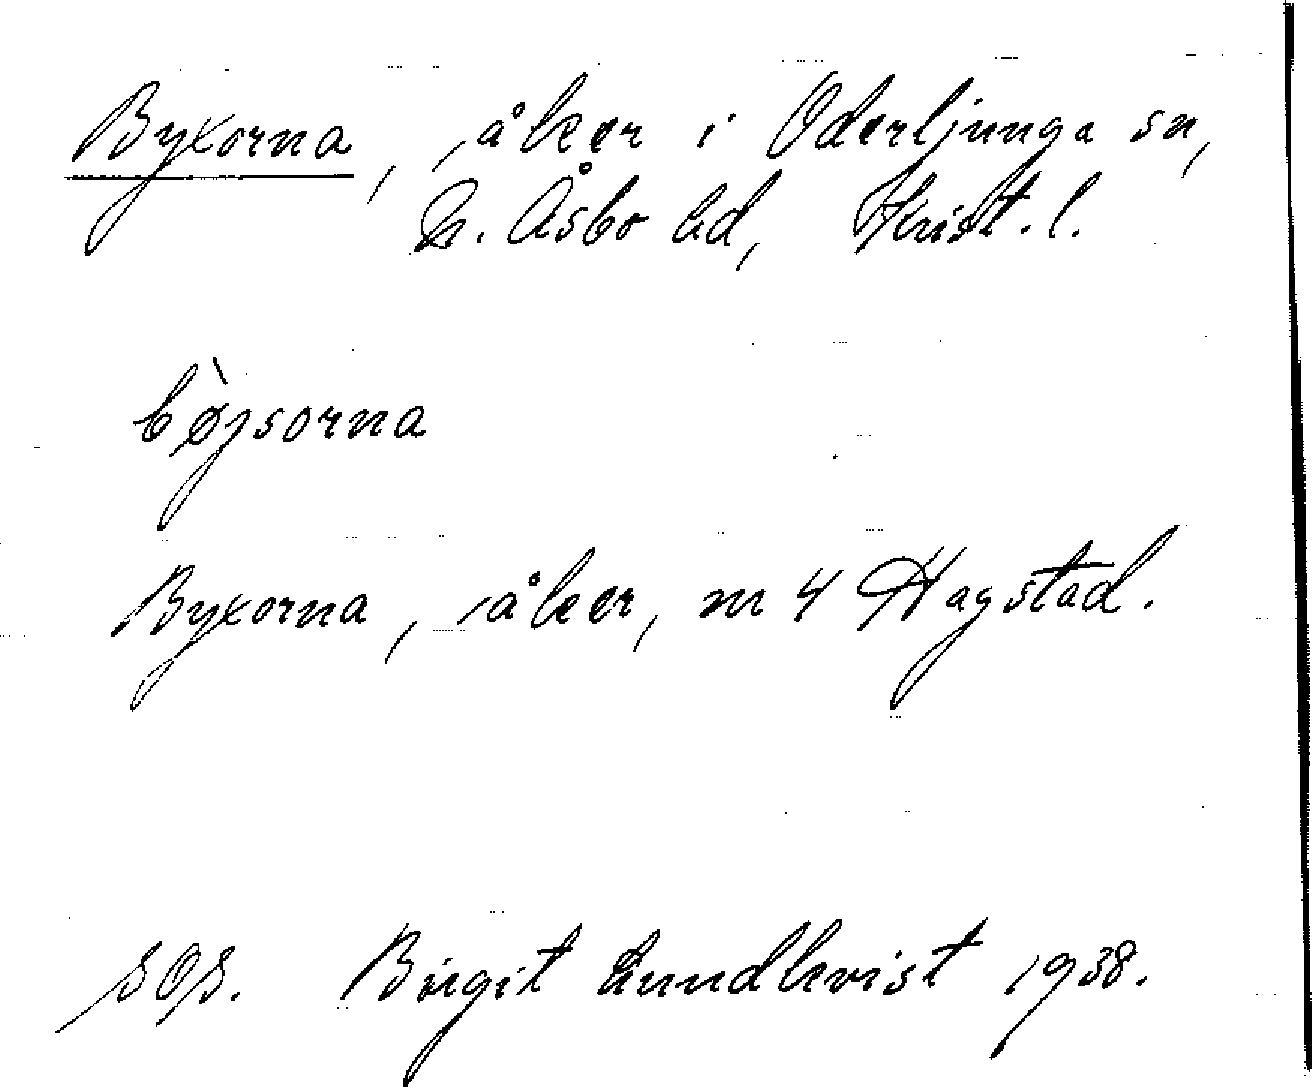 Byxorna, åker i Oderljunga sn,
N. Åsbo hd, Krist. l.
bø̀jsorna
Byxorna, åker, nr 4 Hagstad.
Birgit Lundkvist 1938.